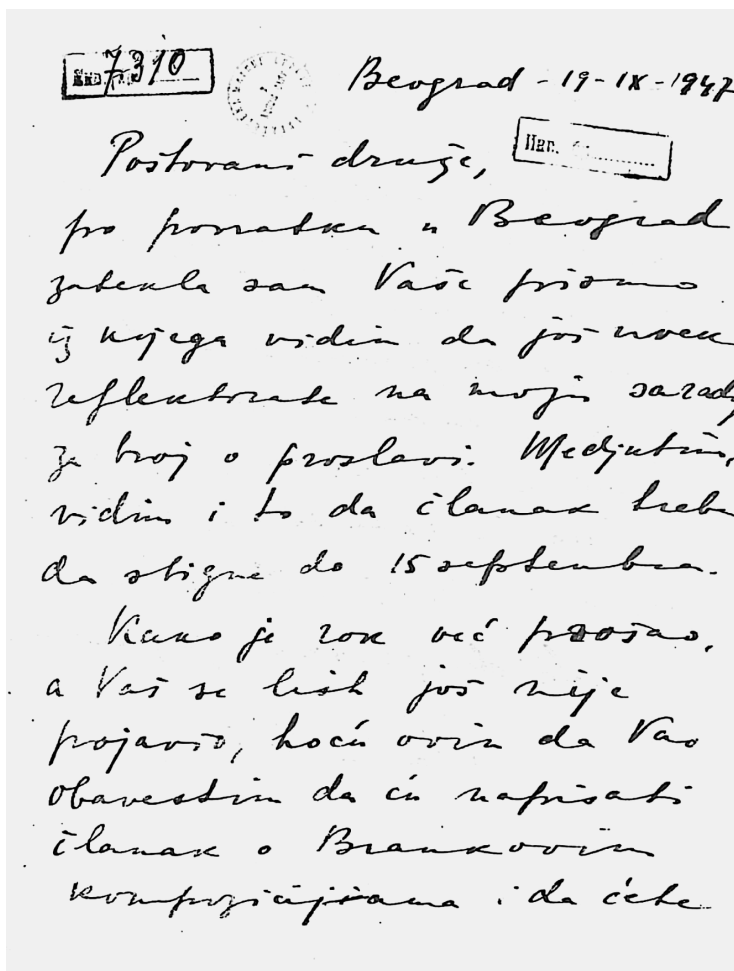 7310
Beograd - 19-IX-1947
Poštovani druže,
po povratku u Beograd
zatekla sam Vaše pismo
iz kojega vidim da još uvek
reflektirate na moju sarad
za broj o proslavi. Medjutim,
vidim i to da članak treba
da stigne do 15 septembra.
Kako je rok već prošao,
a Vaš se list još nije
pojavio, hoću ovim da Vas
obavestim da ću napisati
članak o Brankovim
kompozicijama i da ćete